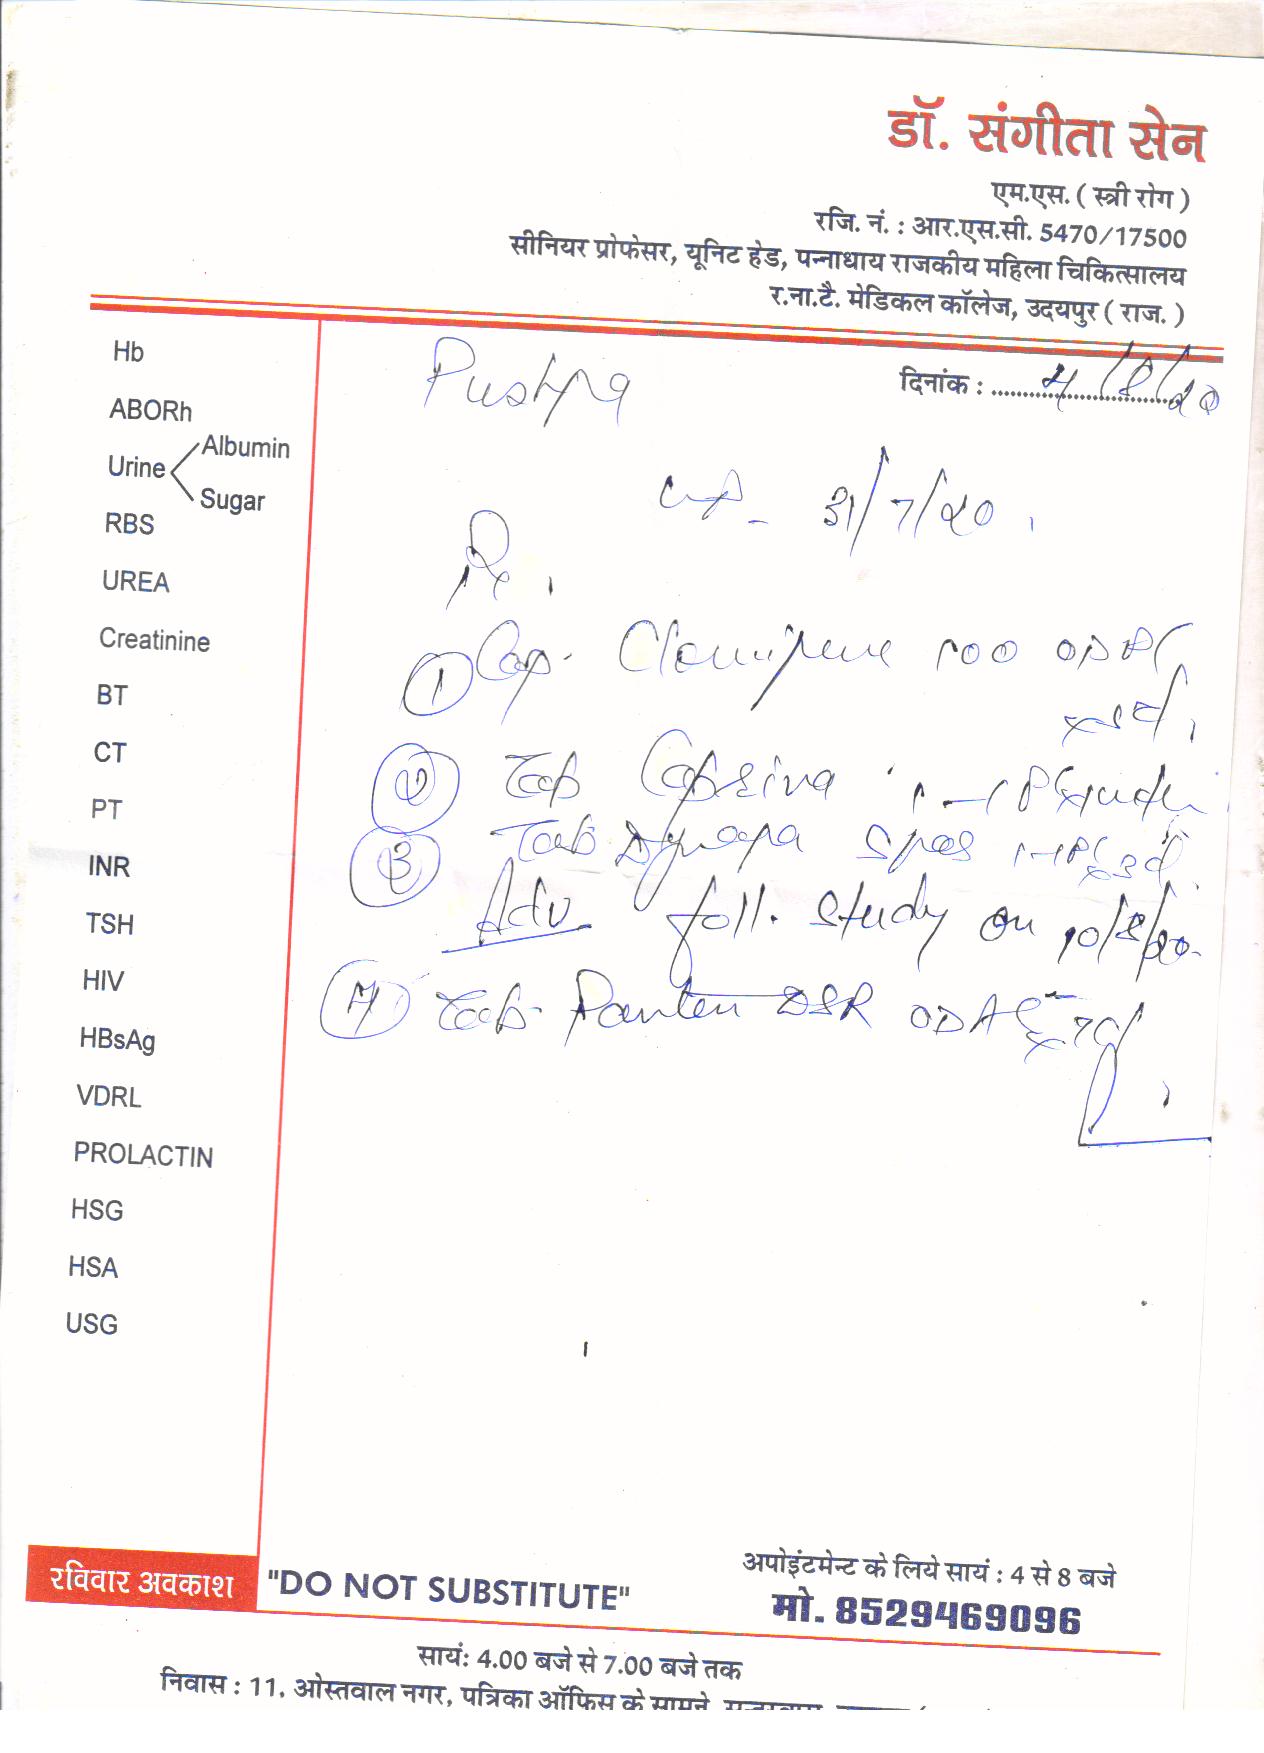 डॉ. संगीता सेन
एम.एस. ( स्त्री रोग )
रजि. नं. : आर.एस.सी. 5470/17500
सीनियर प्रोफेसर, यूनिट हेड, पन्नाधाय राजकीय महिला चिकित्सालय
र.ना.टै. मेडिकल कॉलेज, उदयपुर ( राज. )
दिनांक : 4/8/20
Pushpa
31/7/20
Rx
① Cap. 100 OD
② Tab
③ Tab Spas
Adv foll. study on 10/8/20
④ Tab. DSR OD
Hb
ABORh
Urine Albumin
Sugar
RBS
UREA
Creatinine
BT
CT
PT
INR
TSH
HIV
HBsAg
VDRL
PROLACTIN
HSG
HSA
USG
रविवार अवकाश
"DO NOT SUBSTITUTE"
अपोइंटमेन्ट के लिये सायं : 4 से 8 बजे
मो. 8529469096
सायं: 4.00 बजे से 7.00 बजे तक
निवास : 11, ओस्तवाल नगर, पत्रिका ऑफिस के सामने,